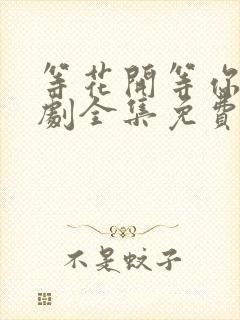 等花開等你
劇全集免費
不是蚊子